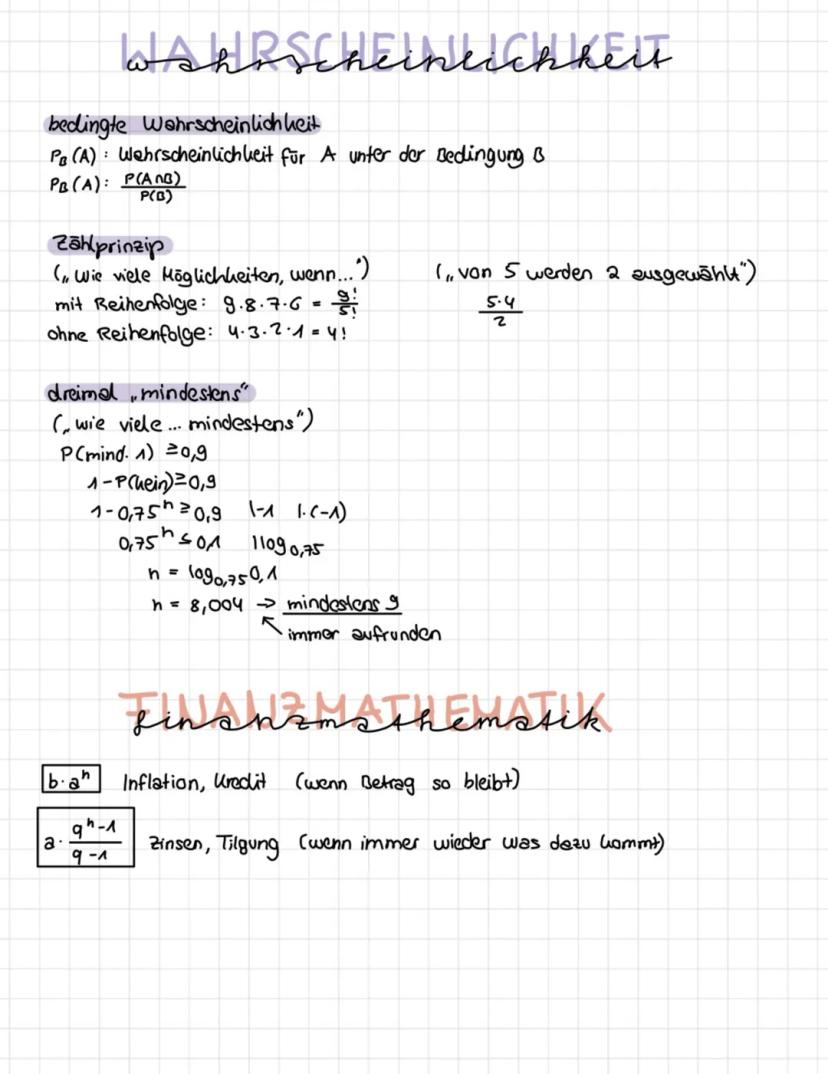 WAHRSCHEINLICHKEIT
wahrscheinlichkeit
bedingte Wahrscheinlichkeit
P_B (A) : Wahrscheinlichkeit für A unter der Bedingung B
P_B (A) : P(A∩B) / P(B)
Zählprinzip
(„ Wie viele Möglichkeiten, wenn...")
mit Reihenfolge: 9·8·7·6 = 9!/5!
ohne Reihenfolge: 4·3·2·1 = 4!
(„ von 5 werden 2 ausgewählt")
5·4 / 2
dreimal „mindestens"
(„ wie viele ... mindestens")
P(mind. 1) ≥0,9
1-P(kein)≥0,9
1-0,75^n ≥ 0,9 |-1 |·(-1)
0,75^n ≤ 0,1 |log_0,75
n = log_0,75 0,1
n = 8,004 → mindestens 9
immer aufrunden
FINANZMATHEMATIK
finanzmathematik
b·a^n Inflation, Kredit (wenn Betrag so bleibt)
a· q^n-1 / q-1 Zinsen, Tilgung (wenn immer wieder was dazu kommt)